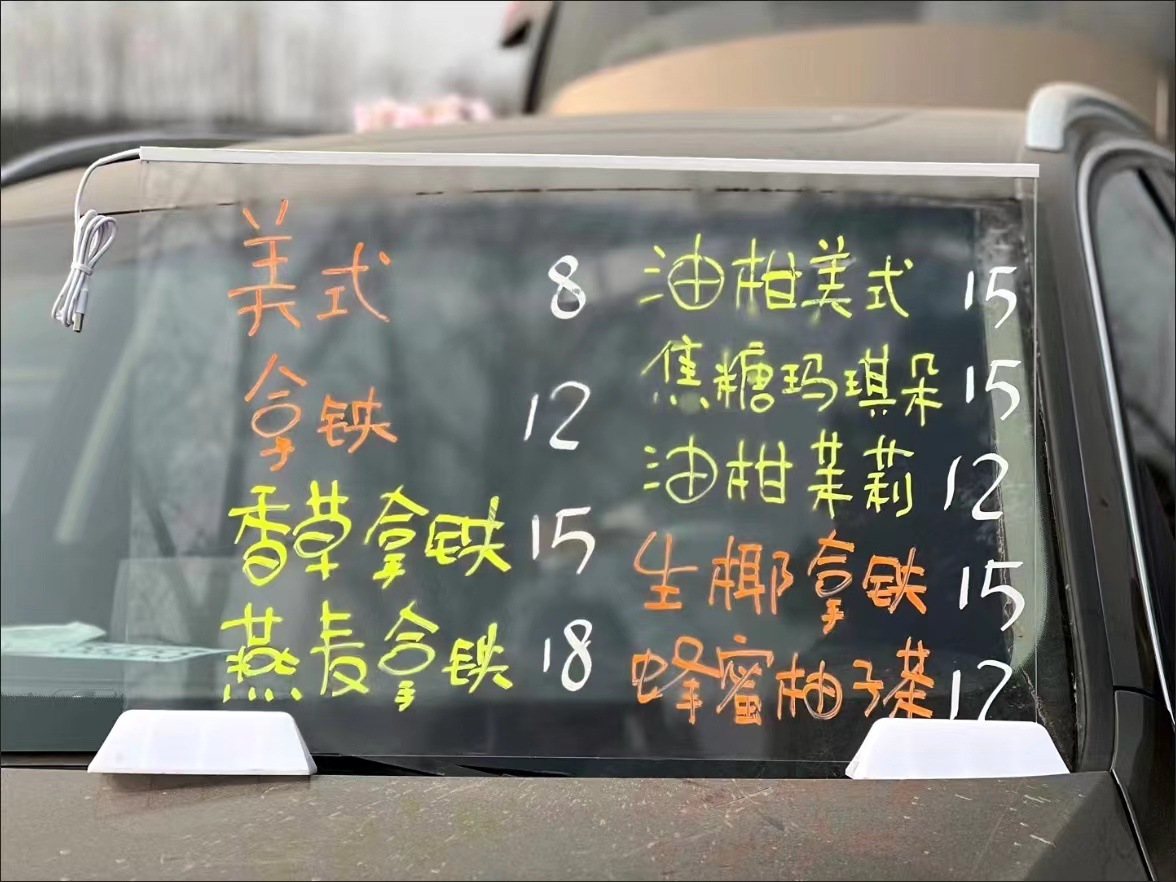 美式 8
拿铁 12
香草拿铁 15
燕麦拿铁 18
油柑美式 15
焦糖玛琪朵 15
油柑茉莉 12
生椰拿铁 15
蜂蜜柚子茶 12